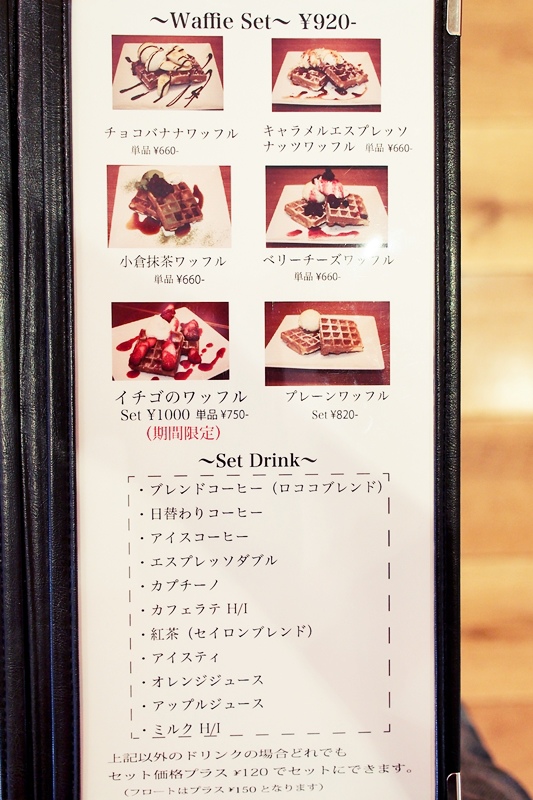 ～Waffle Set～ ¥920-
チョコバナナワッフル
単品 ¥660-
キャラメルエスプレッソ
ナッツワッフル 単品 ¥660-
小倉抹茶ワッフル
単品 ¥660-
ベリーチーズワッフル
単品 ¥660-
イチゴのワッフル
Set ¥1000 単品 ¥750-
(期間限定)
プレーンワッフル
Set ¥820-
～Set Drink～
・ブレンドコーヒー（ロココブレンド）
・日替わりコーヒー
・アイスコーヒー
・エスプレッソダブル
・カプチーノ
・カフェラテ H/I
・紅茶（セイロンブレンド）
・アイスティ
・オレンジジュース
・アップルジュース
・ミルク H/I
上記以外のドリンクの場合どれでも
セット価格プラス ¥120 でセットにできます。
（フロートはプラス ¥150 となります）